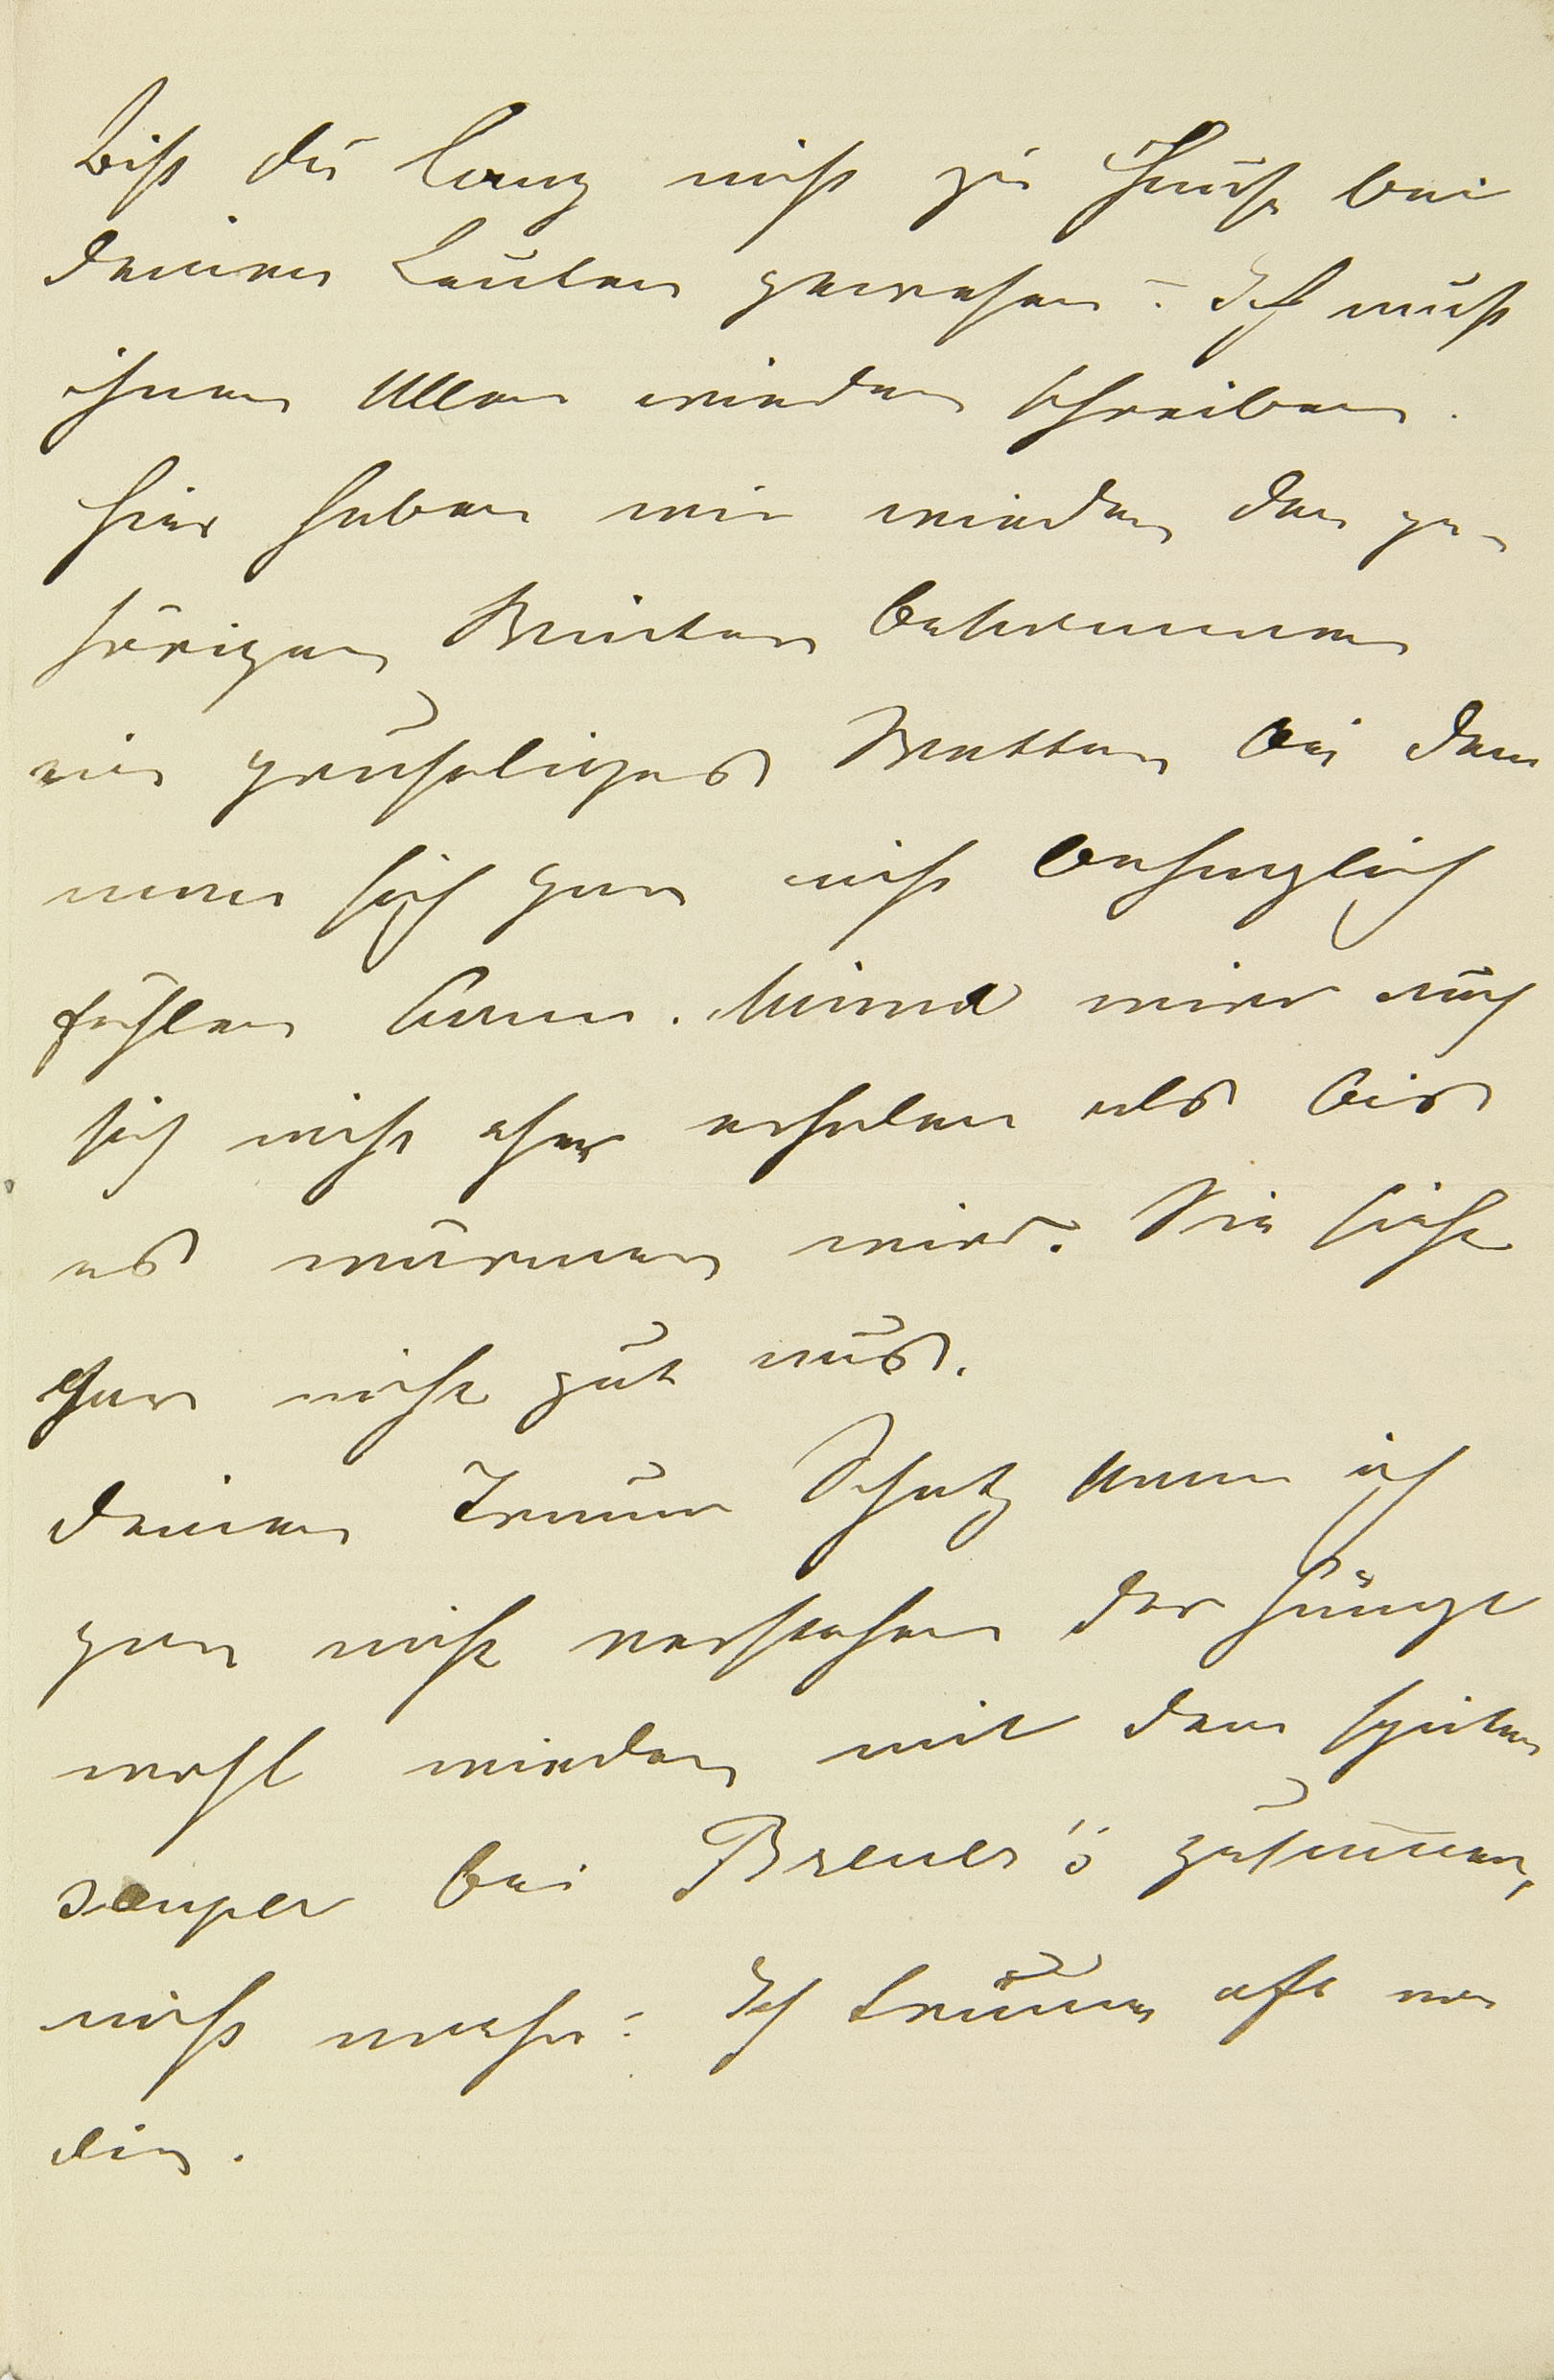 Bist du lang nicht zu Hause bei
deinen Leuten gewesen? Ich muß
ihnen Allen wieder schreiben.
Hier haben wir wieder den ge-
hörigen Winter bekommen
ein gruseliges Wetter bei dem
man sich gar nicht behaglich
fühlen kann. Minna wird auch
sich nicht eher erholen als bis
es wärmer wird. Sie sieht
gar nicht gut aus.
Deinen Traum Schatz kann ich
gar nicht verstehen der hängt
wohl wieder mit dem späten
souper bei Breuer's zusammen,
nicht wahr? Ich träume oft von
dir.